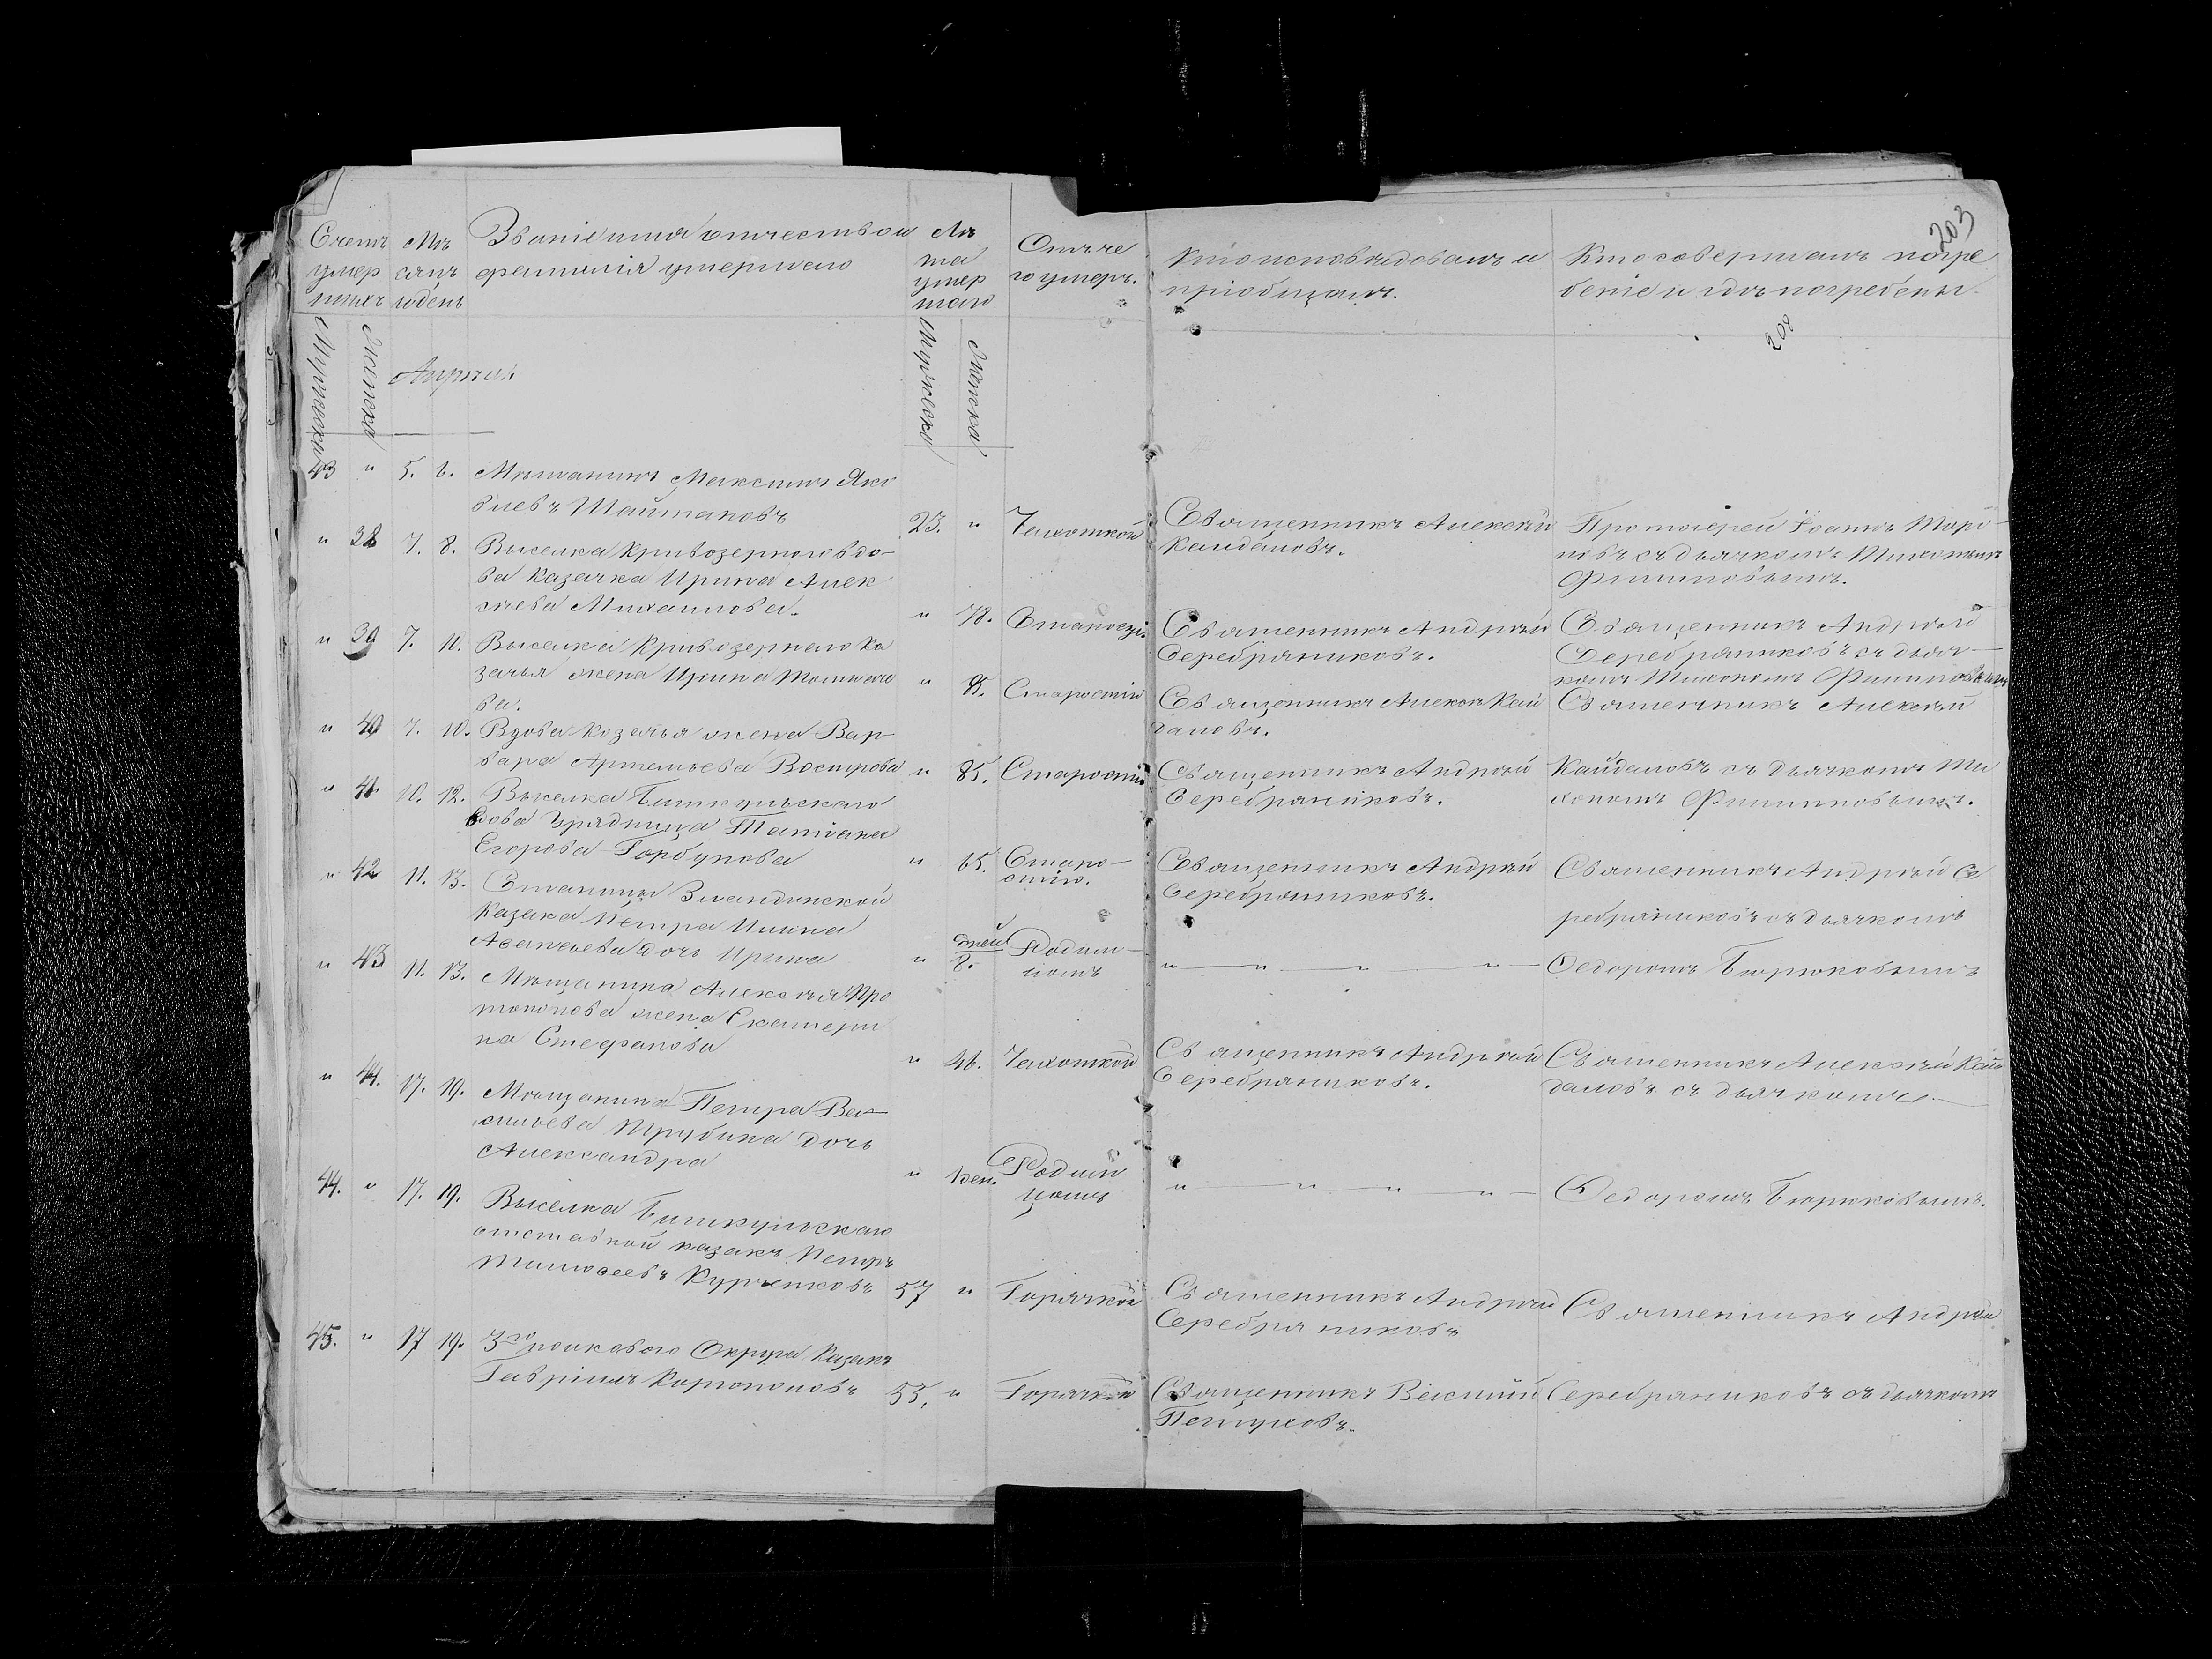 203
Счетъ умер шихъ
Мѣ сяцъ и день
Званіе имя отчество и
фамилія умершаго
Лѣ та умер шаго
Отъ че
го умеръ.
Кто исповѣдовалъ и
пріобщалъ.
Кто совершалъ погре
беніе и гдѣ погребены.
208
Мужеска
Женска
Апрѣль
Мужеска
Женска
43 " 5. 6. Мѣщанинъ Максимъ Яко
влевъ Шайтановъ
23. " Чахоткой
Священникъ Алексѣй
Кайдаловъ.
Протоіерей Іоаннъ
съ дьячкомъ Тихономъ
Филиповымъ.
" 38 7. 8. Выселка Кривозернаго вдо-
ва Казачка Ирина Алек
сѣева Михаилова.
" 78. Старостію
Священникъ Андрей
Серебряниковъ.
Священникъ Андрей
Серебряниковъ съ дьяч-
комъ Тихономъ Филиповымъ
" 39 7. 10. Выселка Кривозернаго Ка
зачья жена Ирина
ва.
" Старостію
Священникъ Алексѣй Кай
даловъ.
Священникъ Алексѣй
" 40 7. 10. Вдова Козачья жена Вар-
вара Артемьева Вострова
" 85. Старостію
Священникъ Андрей
Серебряниковъ.
Кайдаловъ съ дьячкомъ Ти
хономъ Филиповымъ.
" 41 10. 12. Выселка Бишкульскаго
вдова Урядница Татіана
Егорова Горбунова
" 65. Старо-
стію.
Священникъ Андрей
Серебряниковъ.
Священникъ Андрей Се
ребряниковъ съ дьячкомъ
" 42 11. 13. Станицы
Казака Петра Ильина
дочь Ирина
" дней
8. Родим-
цомъ
" — " — " — " —
Ѳедоромъ Бирюковымъ
" 43 11. 13. Мѣщанина Алексѣя Про
топопова жена Екатери
на Стефанова
" 46. Чахоткой
Священникъ Андрей
Серебряниковъ.
Священникъ Алексѣй Кай
даловъ съ дьячкомъ —
" 44. 17. 19. Мѣщанина Петра Ва-
сильева Трубина дочь
Александра
" Родим
цомъ
" — " — " — " —
Ѳедоромъ Бирюковымъ.
44. " 17. 19. Выселка Бишкульскаго
отставной казакъ Петръ
Тимоѳеевъ Курченковъ
57 " Горячкой
Священникъ Андрей
Серебряниковъ
Священникъ Андрей
45. " 17 19. 3го полковаго Округа Казакъ
Гавріилъ
53. " Горячкой
Священникъ Василій
Петуховъ.
Серебряниковъ съ дьячкомъ